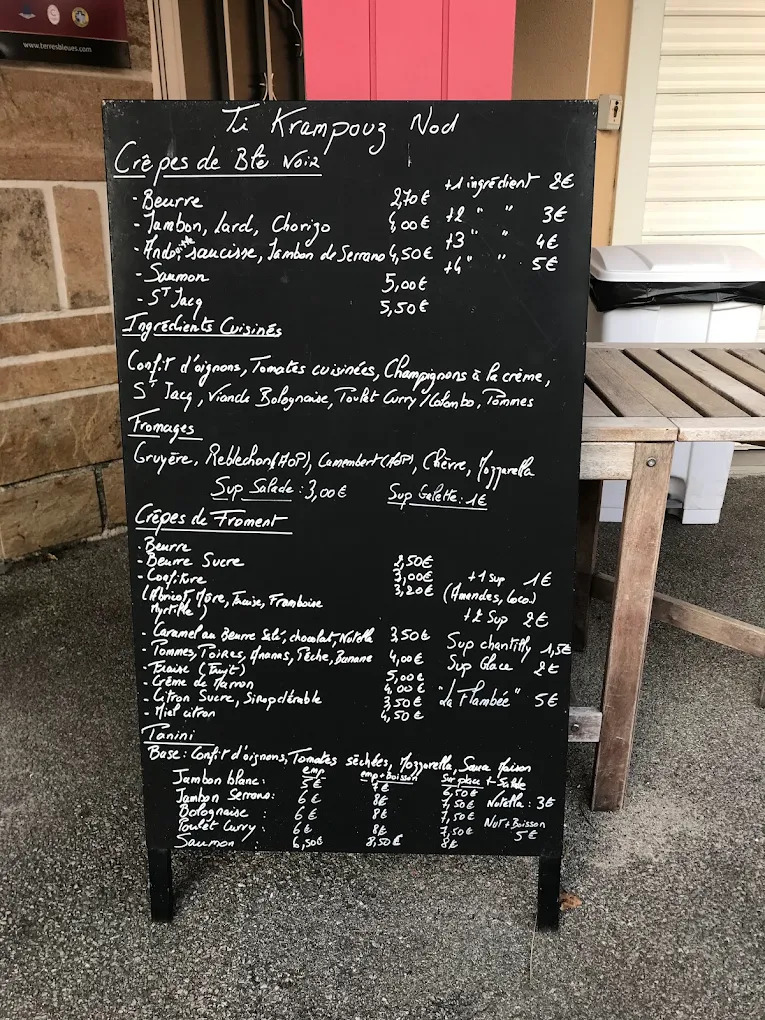 www.terresbleues.com
Ti Krampouz Nod
Crêpes de Blé Noir
- Beurre 2,70€ +1 ingrédient 2€
- Jambon, Lard, Chorizo 4,00€ +2 " " 3€
- Andouille, saucisse, Jambon de Serrano 4,50€ +3 " " 4€
- Saumon 5,00€ +4 " " 5€
- St Jacq 5,50€
Ingrédients Cuisinés
Confit d'oignons, Tomates cuisinées, Champignons à la crème,
St Jacq, Viande Bolognaise, Poulet Curry/Colombo, Pommes
Fromages
Gruyère, Reblochon (AOP), Camembert (AOP), Chèvre, Mozzarella
Sup Salade : 3,00€ Sup Galette : 1€
Crêpes de Froment
- Beurre 2,50€
- Beurre Sucre 3,00€ +1 sup 1€
- Confiture 3,20€ (Amandes, Coco.)
(Abricot, Mûre, Fraise, Framboise
Myrtille) +2 Sup 2€
- Caramel au Beurre Salé, chocolat, Nutella 3,50€ Sup chantilly 1,5€
- Pommes, Poires, Ananas, Pêche, Banane 4,00€ Sup Glace 2€
Fraise (Fruit) 5,00€
- Crème de Marron 4,00€
- Citron Sucre, Sirop d'érable 3,50€ "La Flambée" 5€
- Miel citron 4,50€
Panini
Base : Confit d'oignons, Tomates séchées, Mozzarella, Sauce Maison
emp emp+Boisson Sur place +
Jambon blanc : 5€ 7€ 6,50€
Jambon Serrano : 6€ 8€ 7,50€ Nutella : 3€
Bolognaise : 6€ 8€ 7,50€
Poulet Curry : 6€ 8€ 7,50€ Nut+Boisson
Saumon 6,50€ 8,50€ 8€ 5€